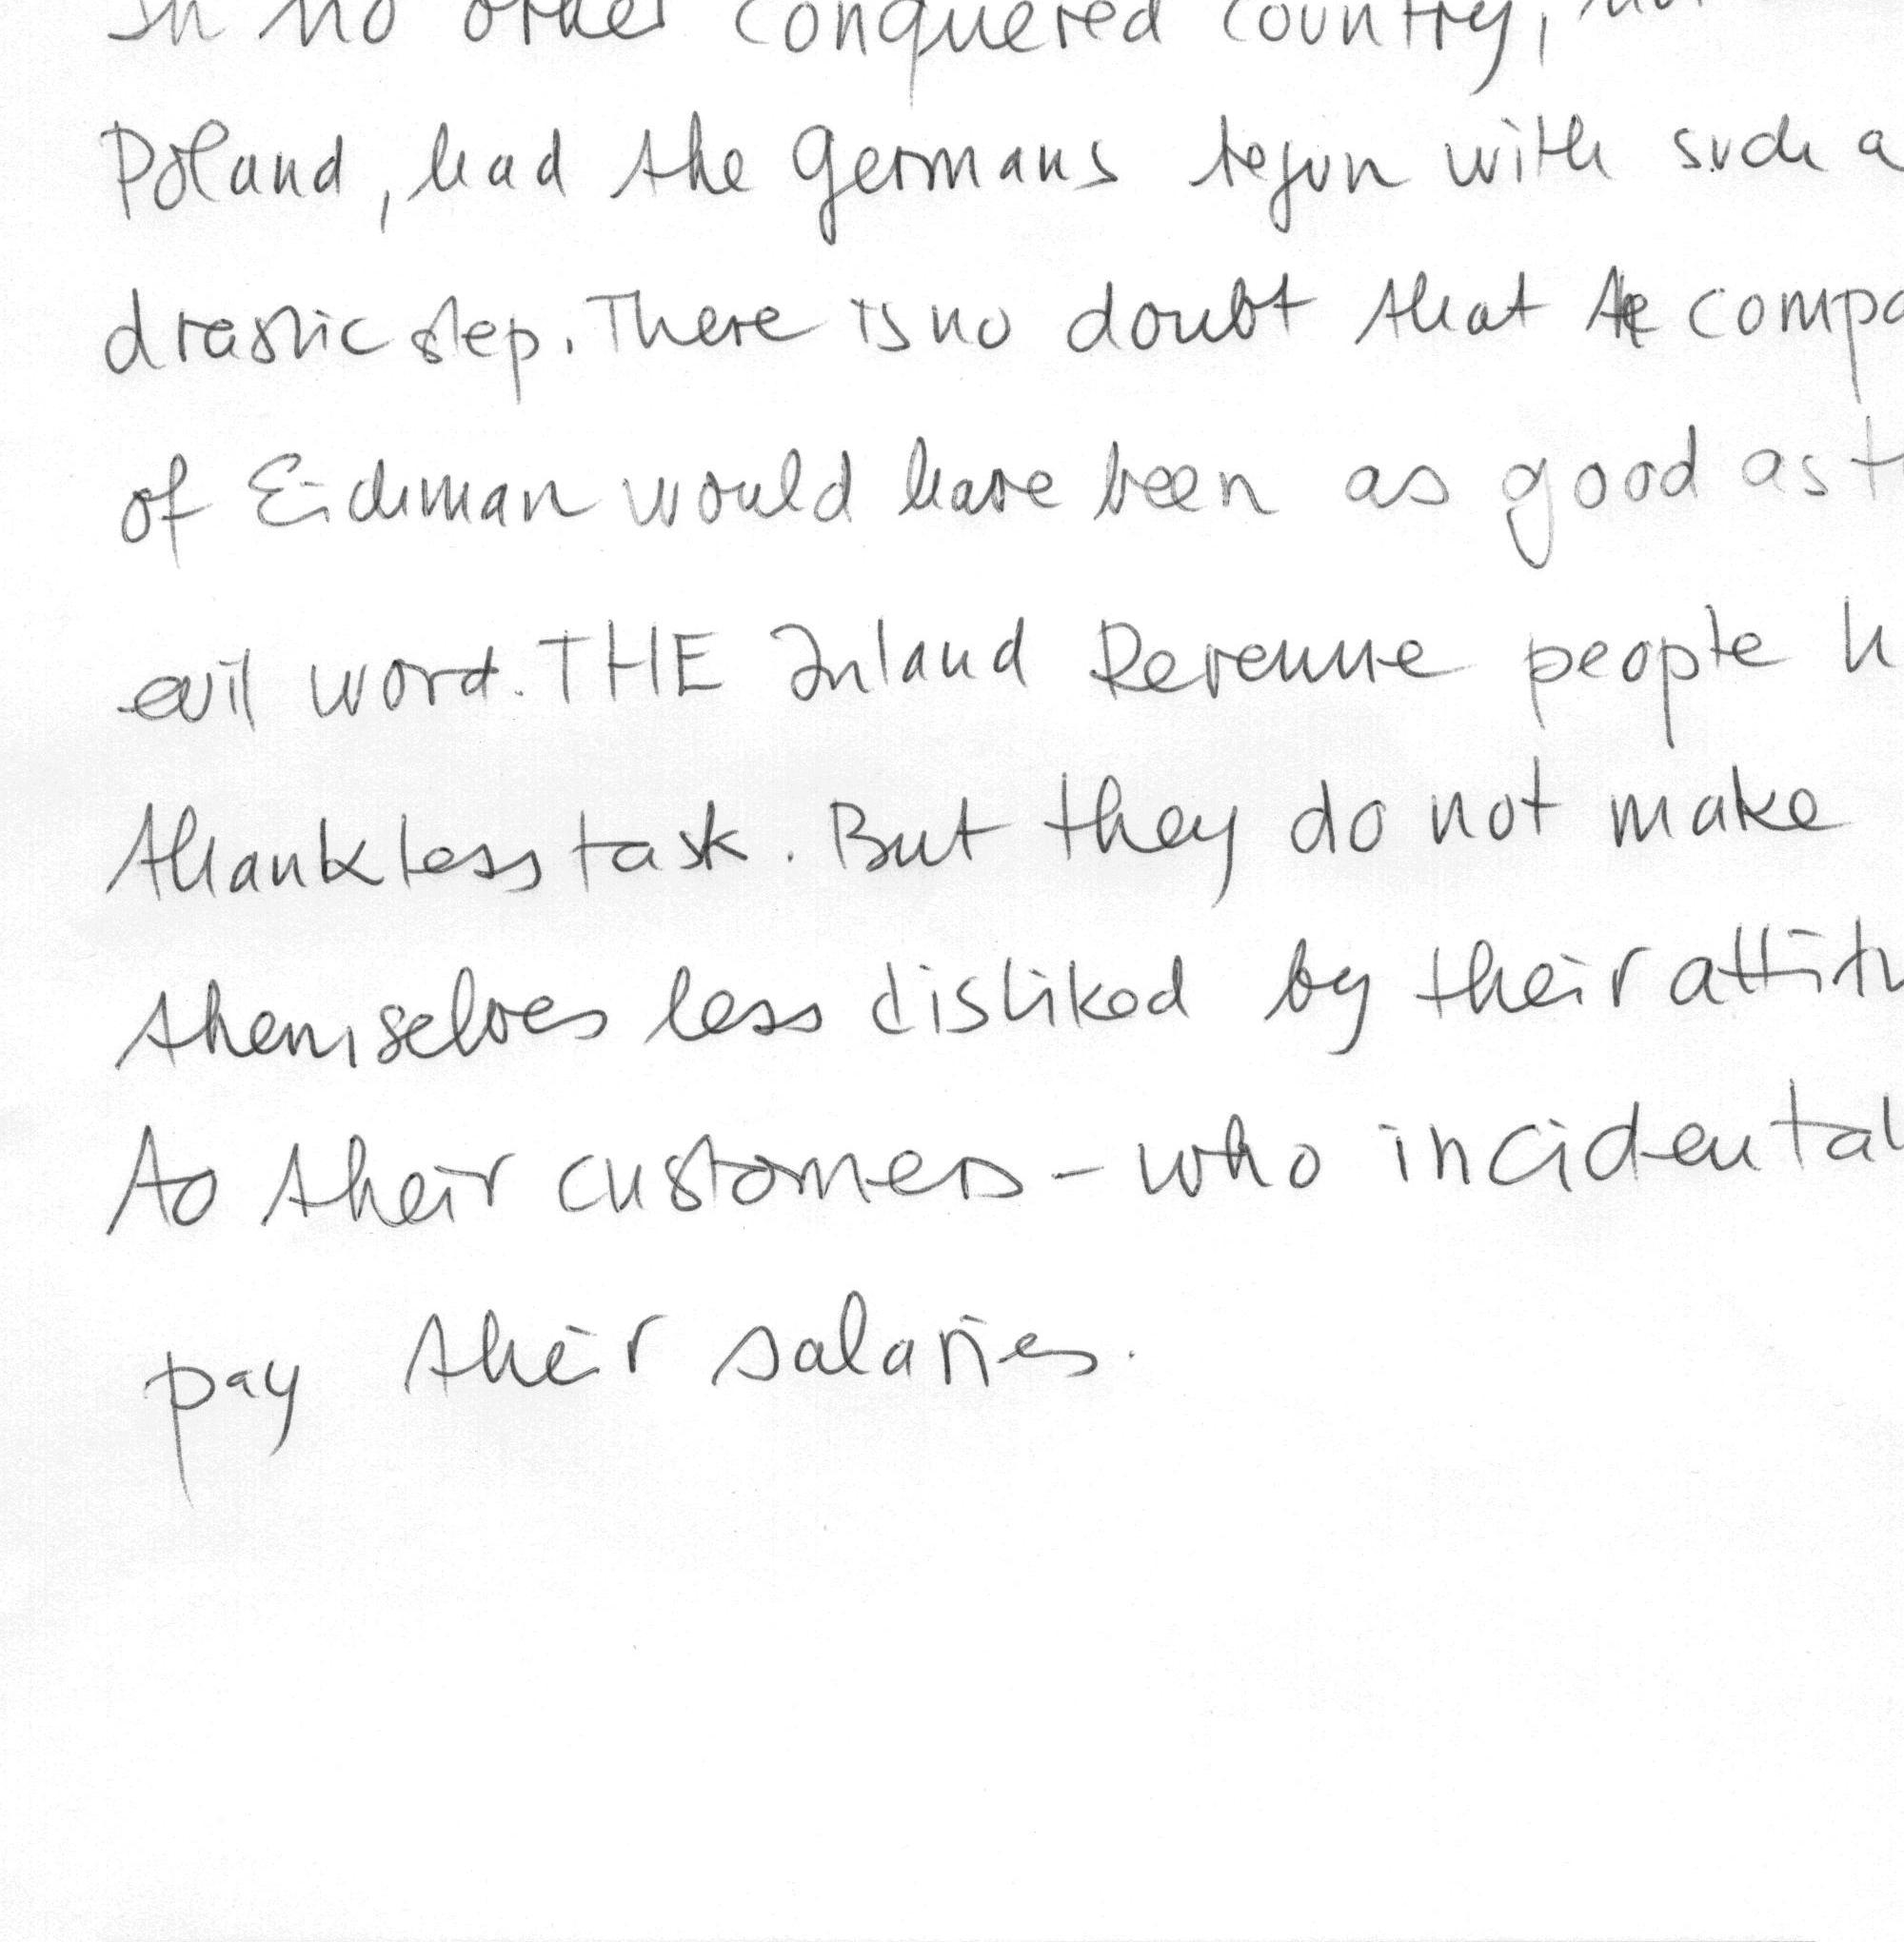 In no other conquered country,
Poland, had the Germans begun with such a
drastic step. There is no doubt that the
of Eichman would have been as good as
evil word. THE Inland Revenue people
thankless task. But they do not make
themselves less disliked by their
to their customers - who
pay their salaries.